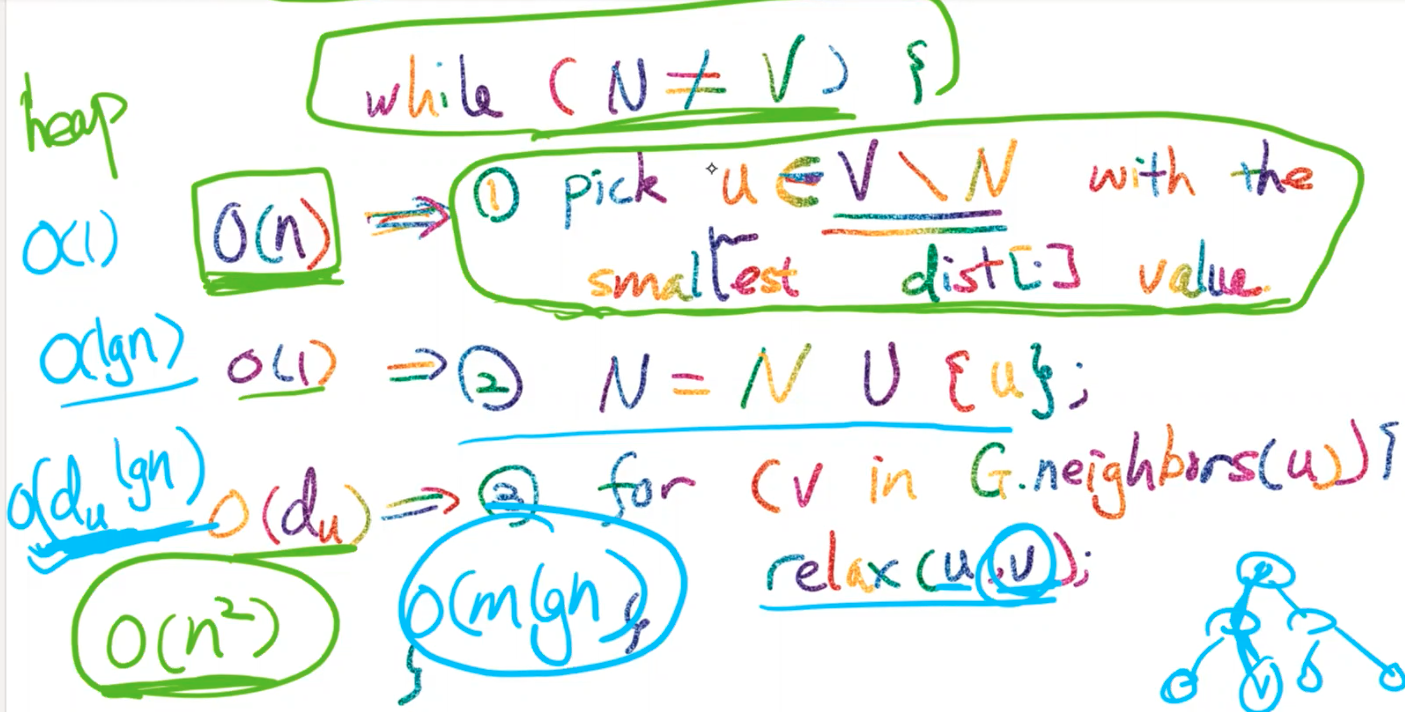 while ( N ≠ V ) {
heap
O(1) O(n) ⇒ ① pick u ∈ V \ N with the
smallest dist[:] value
O(lgn) O(1) ⇒ ② N = N U {u};
O(du lgn) O(du) ⇒ ③ for (v in G.neighbors(u)) {
relax (u,v);
}
O(n²) O(m lgn)
}
v